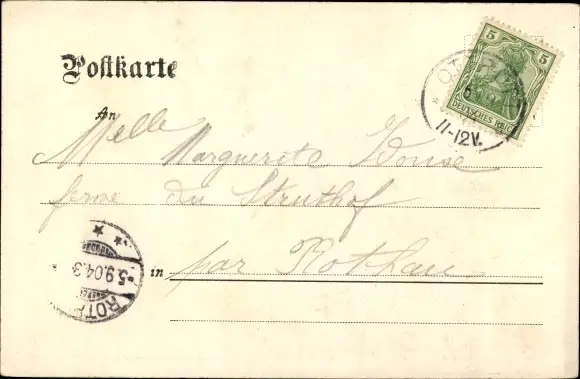 Postkarte
5 5
DEUTSCHES REICH
11-12V.
An
Melle
Marguerite
ferme du Struthof
in par Rothau
5.9.04.3
ROTH